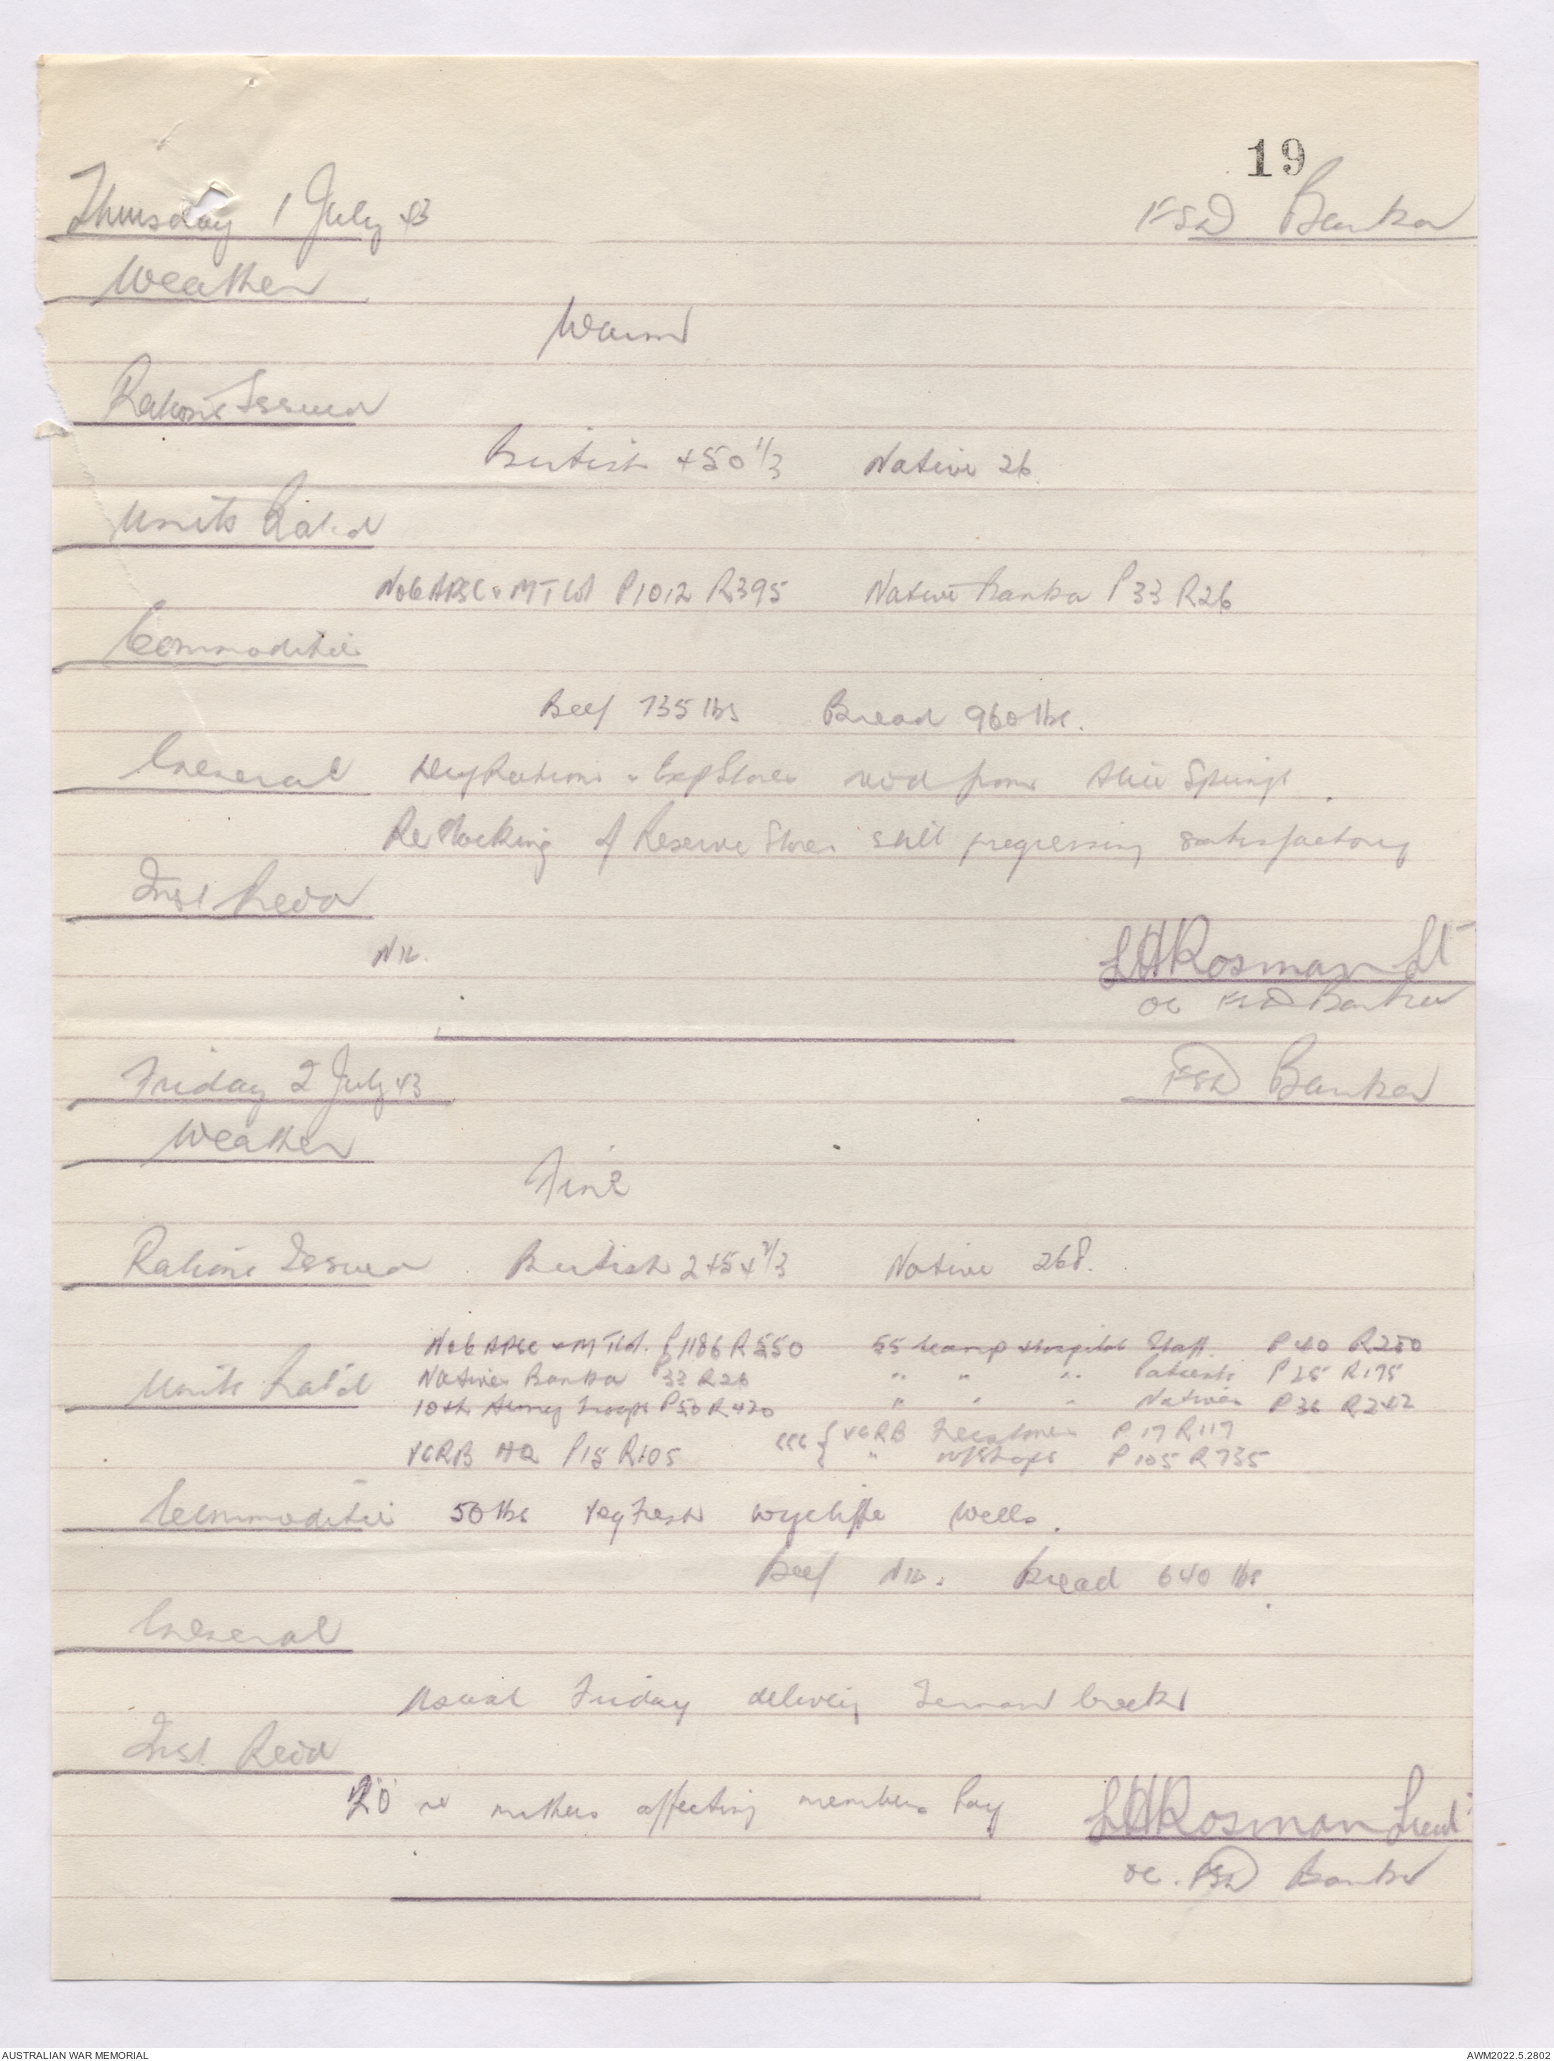 19
Thursday 1 July 43 FSD Banka
Weather
Warm
Rations Issued
British 450 1/3 Native 26
Units Rat'd
No 6 APSC & MT Col P1012 R395 Native Banka P33 R26
Commodities
Beef 735 lbs Bread 960 lbs.
General Dry Rations & Exp Stores recd from Alice Springs.
Restocking of Reserve Stores still progressing satisfactory
Inst Recd
Nil.
LHRosman Lt
OC FSD Banka
Friday 2 July 43 FSD Banka
Weather
Fine
Rations Issued British 2454 2/3 Native 268.
No 6 APSC & MT Col. P1186 R550 55 Camp Hospital Staff. P40 R280
Units Rat'd Natives Banka P33 R26 " " " Patients P25 R175
10th Army Troops P50 R420 " " " Natives P36 R242
VGRB HQ P15 R105 CCC { VGRB P17 R117
" W/Shops P105 R735
Commodities 50 lbs Veg Fresh Wycliffe Wells.
Beef Nil. Bread 640 lbs.
General
Usual Friday delivery Tennant Creek
Inst Recd
re matters affecting members Pay LHRosman Lieut
OC. FSD Banka
AUSTRALIAN WAR MEMORIAL AWM2022.5.2802